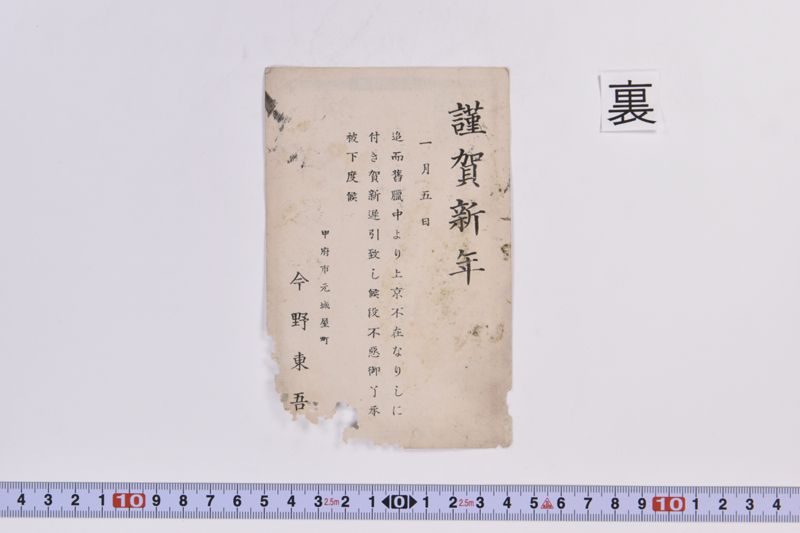 裏
謹賀新年
一月五日
追而舊臘中より上京不在なりしに
付き賀新遅引致し候段不悪御了承
被下度候
甲府市元城屋町
今野東吾
4 3 2 1 10 9 8 7 6 5 4 3 2.5m 2 1 0 1 2 2.5m 3 4 5 6 7 8 9 10 1 2 3 4